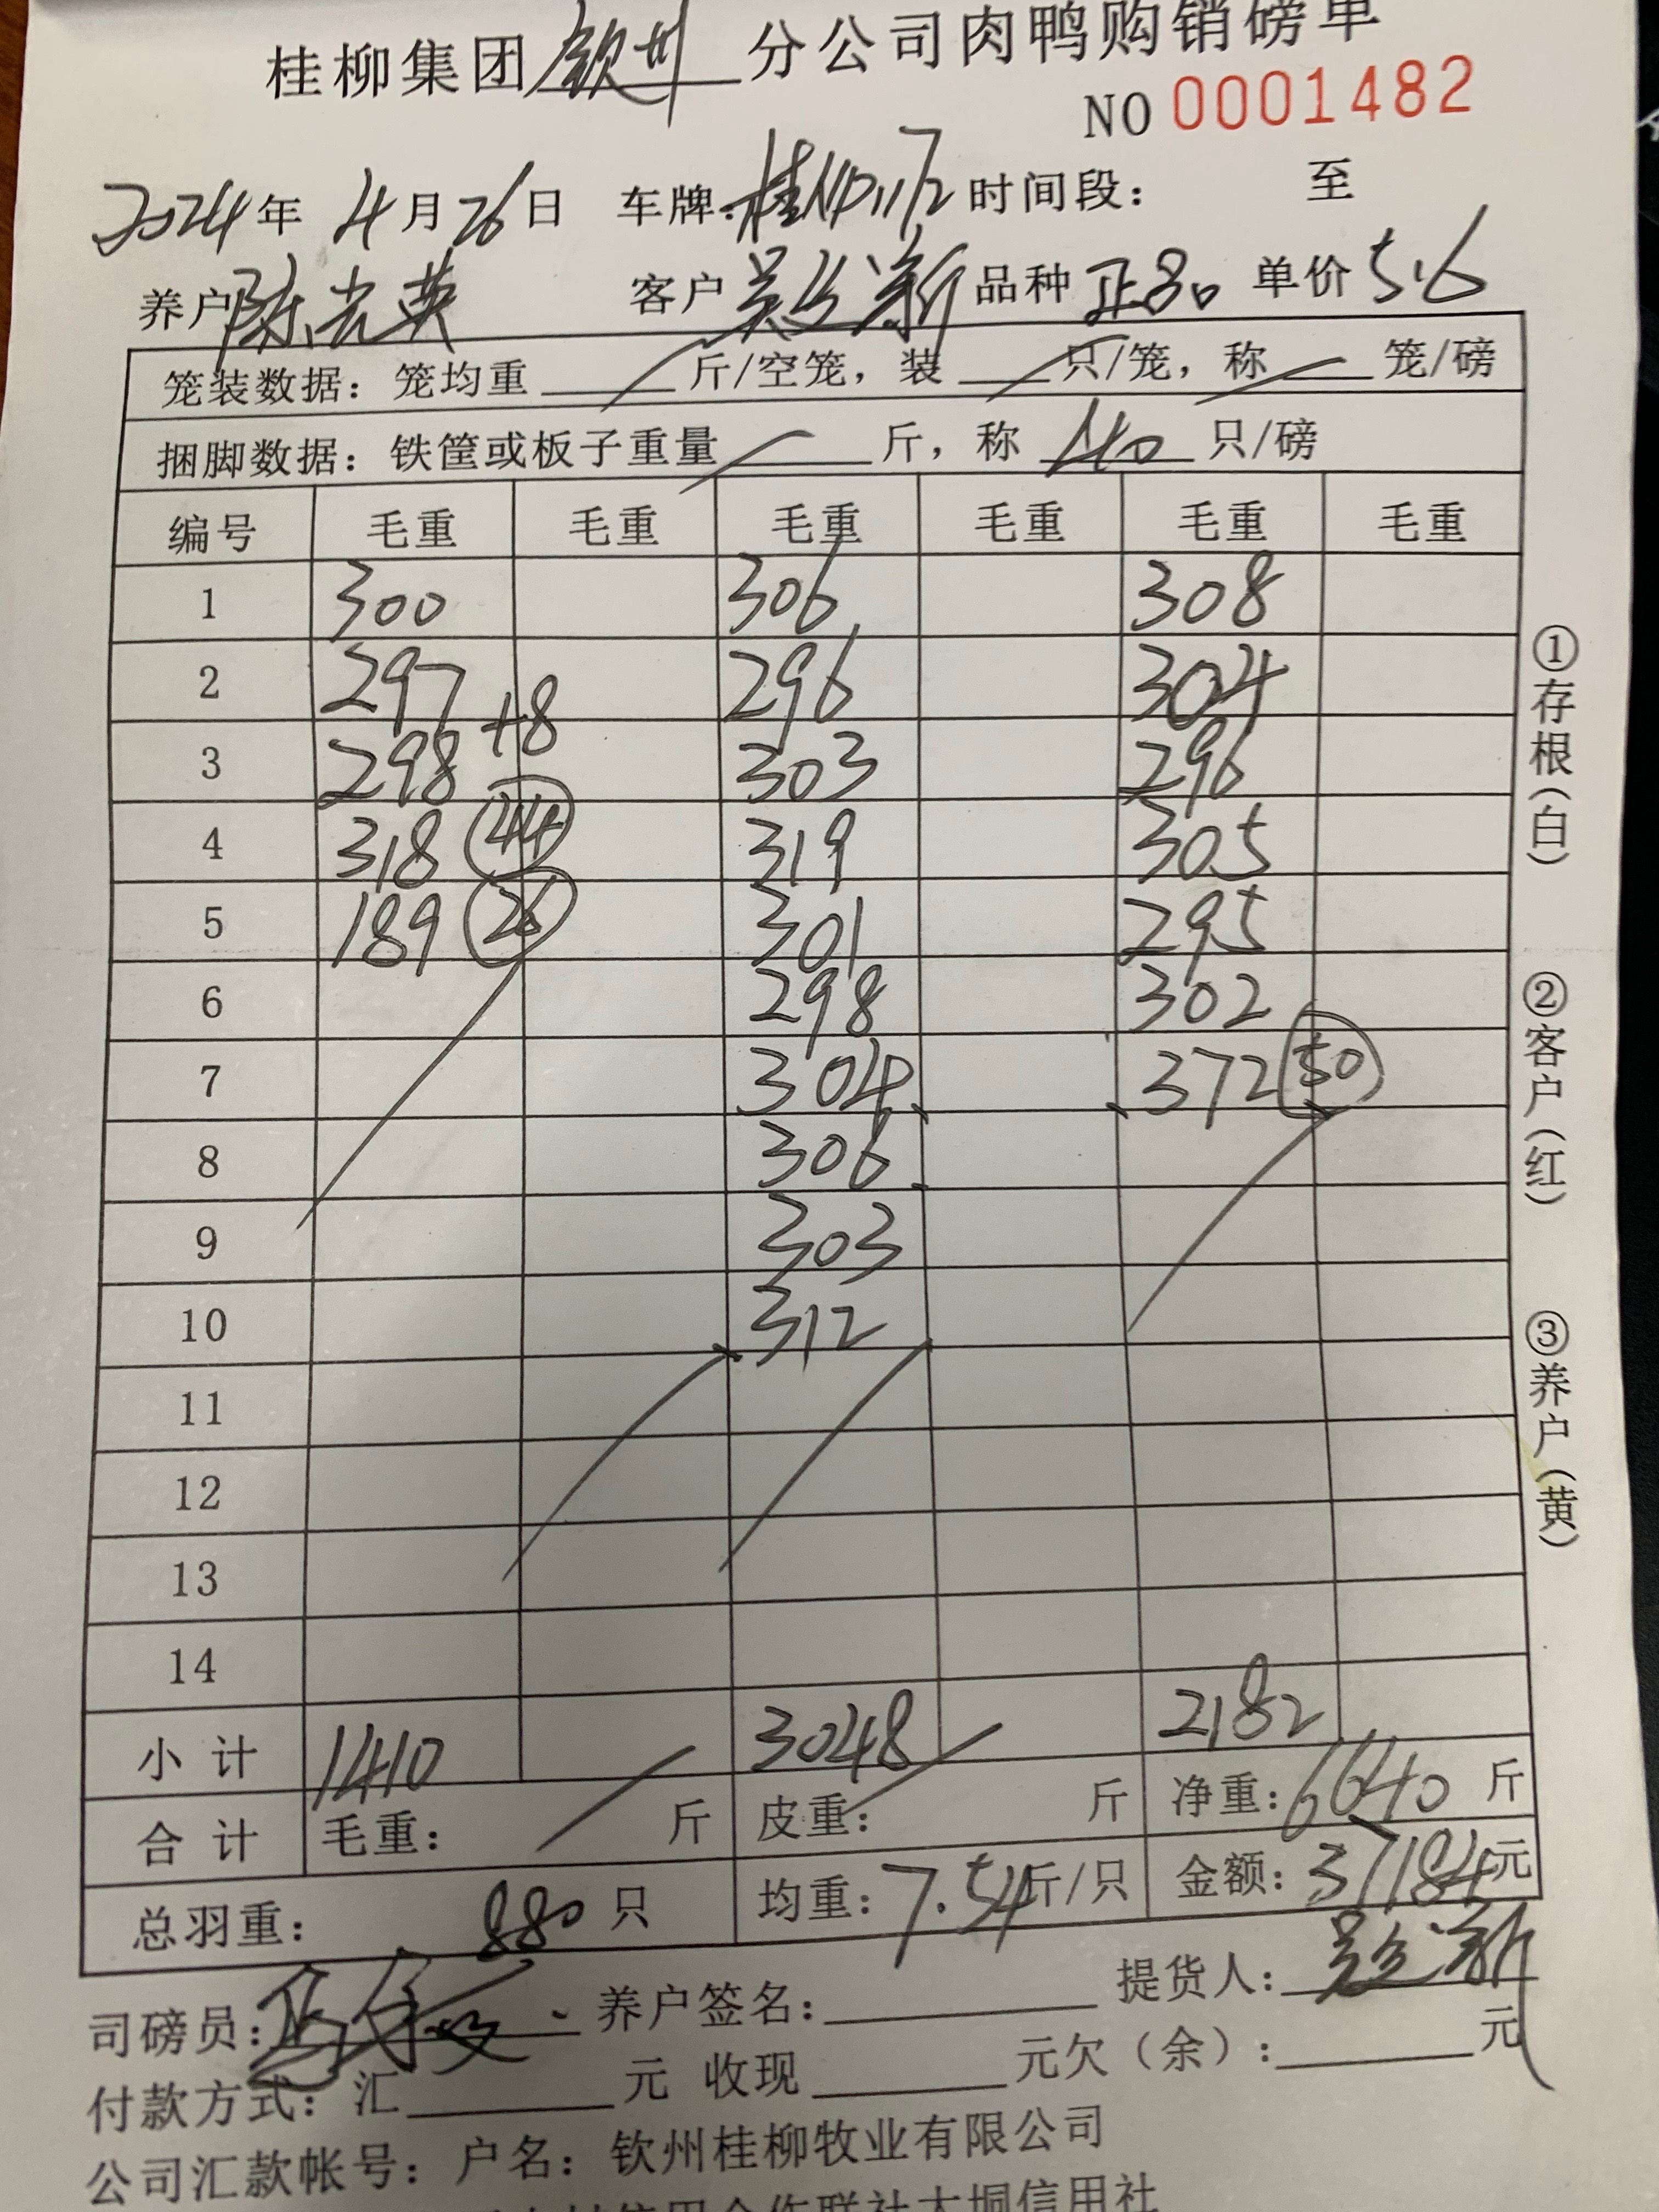 桂柳集团钦州分公司肉鸭购销磅单
NO 0001482
2024年 4月26日 车牌: 时间段: 至
养户陈光英 客户 吴 新 品种 正品 单价 5.6
笼装数据: 笼均重 斤/空笼, 装 只/笼, 称 笼/磅
捆脚数据: 铁筐或板子重量 斤, 称 40 只/磅
编号 毛重 毛重 毛重 毛重 毛重 毛重
1 300 306 308
2 297 296 304
+8
3 298 303 296
4 318 44 319 305
5 189 26 301 295
6 298 302
7 304 372 50
8 306
9 303
10 312
11
12
13
14
小计 1410 3048 2182
合计 毛重: 斤 皮重: 斤 净重: 6640 斤
总羽重: 880 只 均重: 7.54斤/只 金额: 37184元
司磅员: 养户签名: 提货人: 吴 新
付款方式: 汇 元 收现 元欠(余): 元
公司汇款帐号: 户名: 钦州桂柳牧业有限公司
信用合作联社大垌信用社
①存根(白)
②客户(红)
③养户(黄)